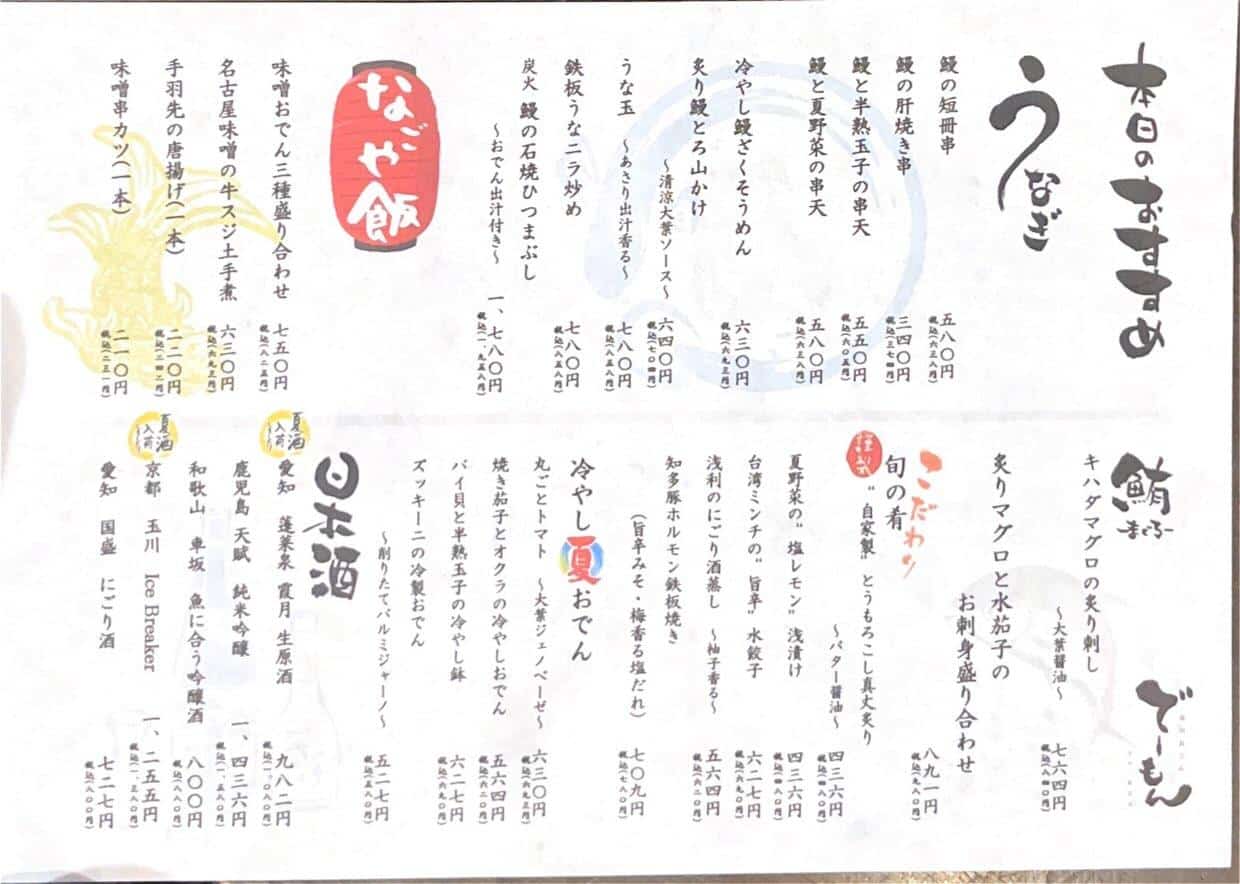 本日のおすすめ
うなぎ
鰻の短冊串
五八〇円
税込(六三八円)
鰻の肝焼き串
三四〇円
税込(三七四円)
鰻と半熟玉子の串天
五五〇円
税込(六〇五円)
鰻と夏野菜の串天
五八〇円
税込(六三八円)
冷やし鰻ざくそうめん
六三〇円
税込(六九三円)
炙り鰻とろ山かけ
～清涼大葉ソース～
六四〇円
税込(七〇四円)
うな玉
～あさり出汁香る～
七八〇円
税込(八五八円)
鉄板うなニラ炒め
七八〇円
税込(八五八円)
炭火 鰻の石焼ひつまぶし
～おでん出汁付き～
一、七八〇円
税込(一、九五八円)
なごや飯
味噌おでん三種盛り合わせ
七五〇円
税込(八二五円)
名古屋味噌の牛スジ土手煮
六三〇円
税込(六九三円)
手羽先の唐揚げ(一本)
二二〇円
税込(二四二円)
味噌串カツ(一本)
二一〇円
税込(二三一円)
でーもん
鮪
～まぐろ～
キハダマグロの炙り刺し
～大葉醤油～
七六四円
税込(八四〇円)
炙りマグロと水茄子の
お刺身盛り合わせ
八九一円
税込(九八〇円)
こだわり
旬の肴
自家製
“自家製”とうもろこし真丈炙り
～バター醤油～
四三六円
税込(四八〇円)
夏野菜の“塩レモン”浅漬け
四三六円
税込(四八〇円)
台湾ミンチの“旨辛”水餃子
六二七円
税込(六九〇円)
浅利のにごり酒蒸し ～柚子香る～
五六四円
税込(六二〇円)
知多豚ホルモン鉄板焼き
(旨辛みそ・梅香る塩だれ)
七〇九円
税込(七八〇円)
冷やし夏おでん
丸ごとトマト ～大葉ジェノベーゼ～
六三〇円
税込(六九三円)
焼き茄子とオクラの冷やしおでん
五六四円
税込(六二〇円)
バイ貝と半熟玉子の冷やし鉢
六二七円
税込(六九〇円)
ズッキーニの冷製おでん
～削りたてパルミジャーノ～
五二七円
税込(五八〇円)
日本酒
夏酒
入荷
愛知 蓬莱泉 霞月 生原酒
九八二円
税込(一、〇八〇円)
鹿児島 天賦 純米吟醸
一、四三六円
税込(一、五八〇円)
和歌山 車坂 魚に合う吟醸酒
八〇〇円
税込(八八〇円)
夏酒
入荷
京都 玉川 Ice Breaker
一、二五五円
税込(一、三八〇円)
愛知 国盛 にごり酒
七二七円
税込(八〇〇円)